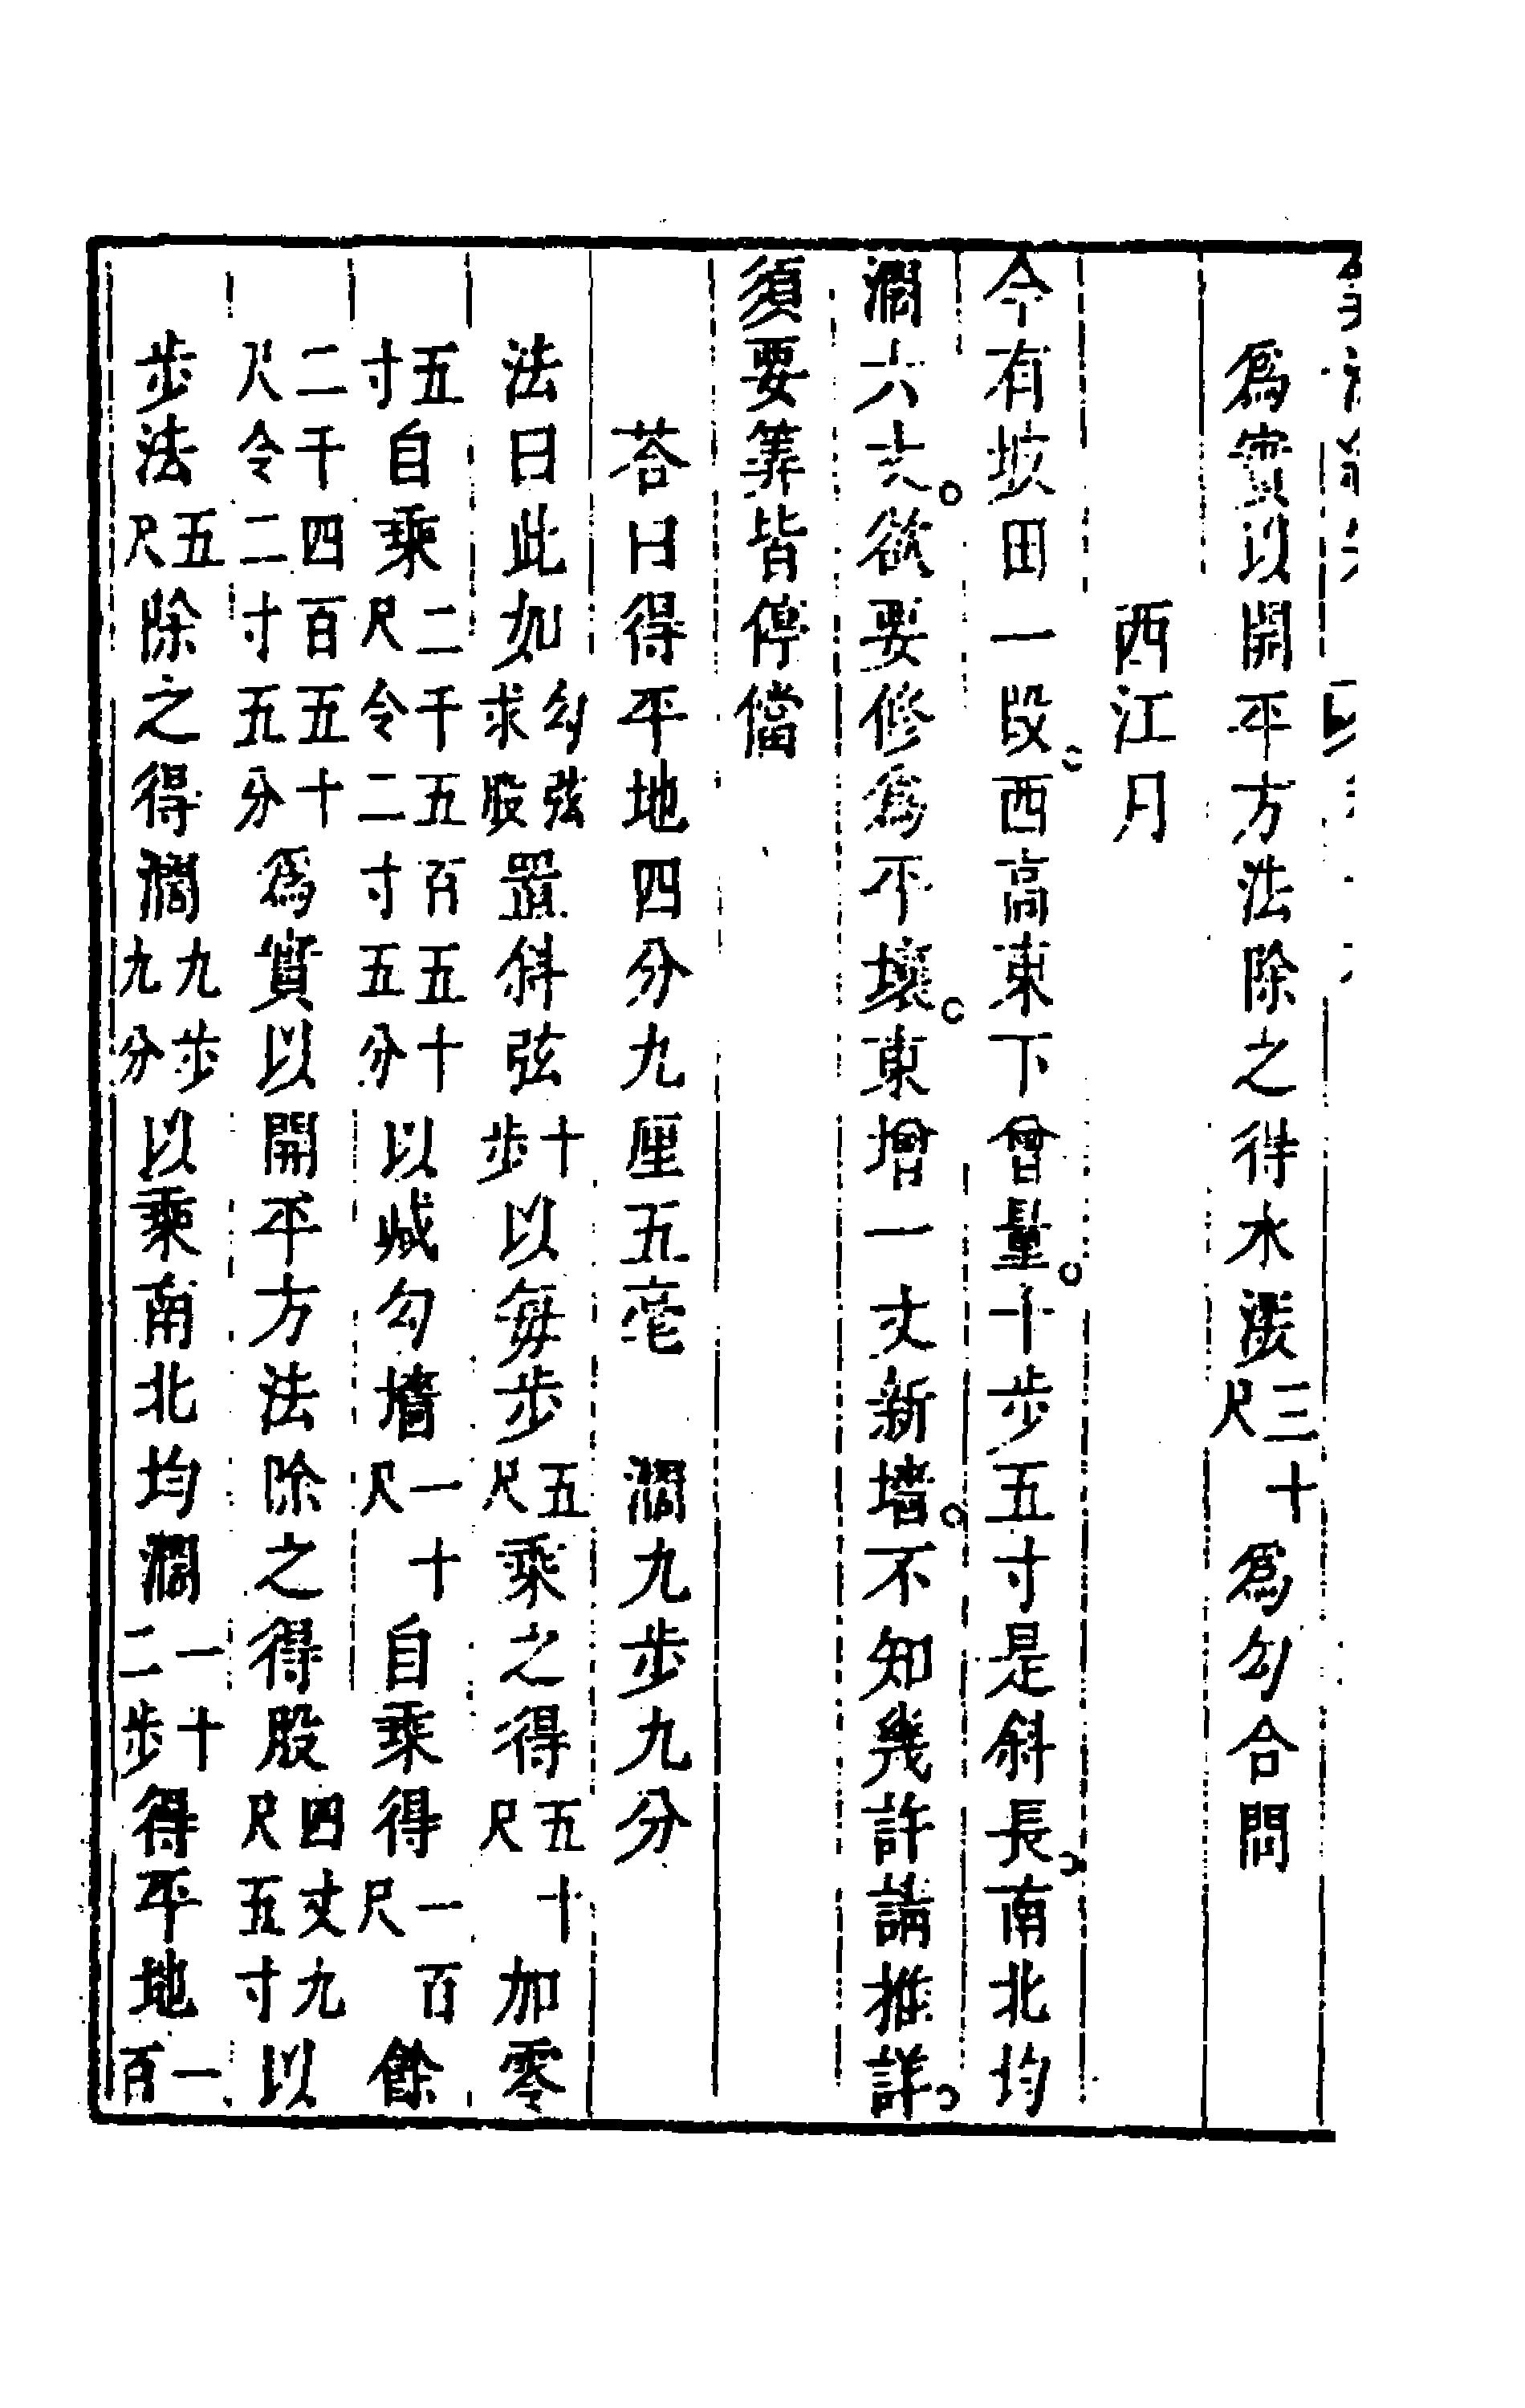 爲實以開平方法除之得水深三十尺爲勾合問
西江月
今有坡田一段西高東下曾量十步五寸是斜長南北均
濶六丈欲要修爲平壤東增一丈新墻不知幾許請推詳
須要筭皆停儅
荅曰得平地四分九厘五毫　濶九步九分
法曰此如勾弦求股置斜弦十步以每步五尺乘之得五十尺加零
五寸自乘二千五百五十尺令二寸五分以减勾墻一十尺自乘得一百尺餘
二千四百五十尺令二寸五分爲實以開平方法除之得股四丈九尺五寸以
步法五尺除之得濶九步九分以乘南北均濶一十二步得平地一百